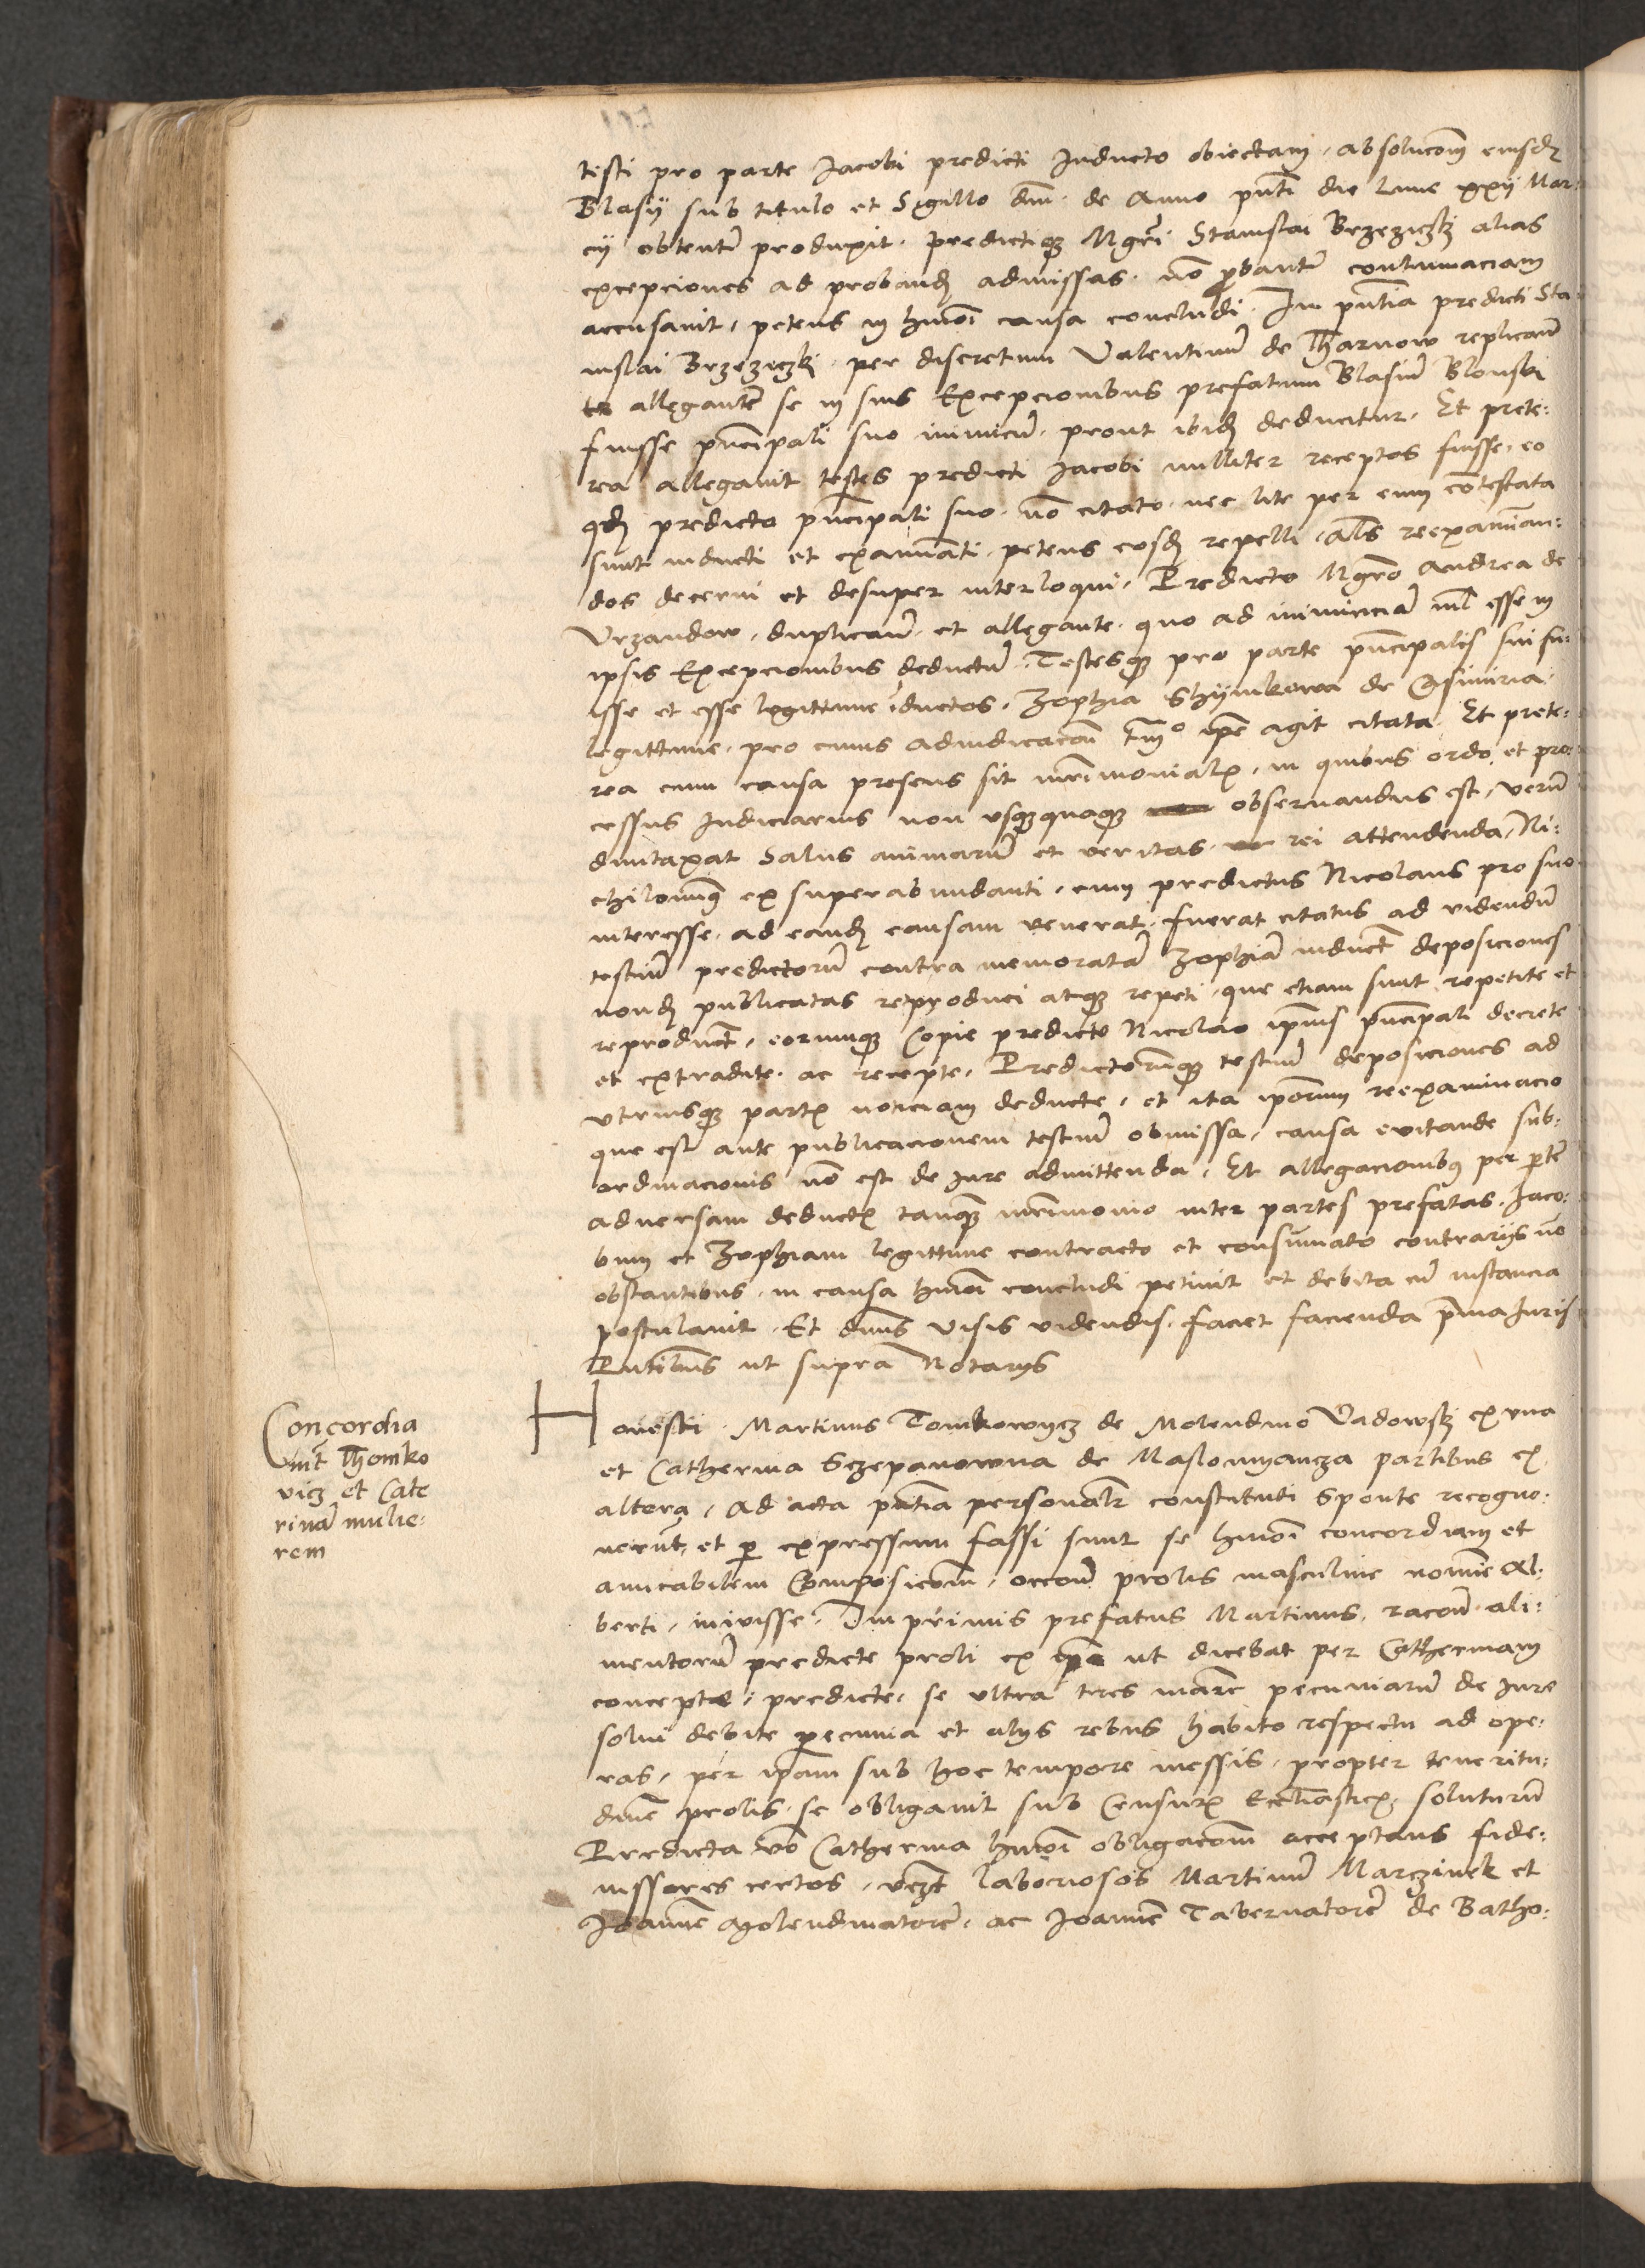 testi pro parte Jacobi predicti Inducto obiectam, absolucom eiusdz
Blasij sub titulo et Sigillo dni de Anno pnti die lune xxij Mar:
cij obtentu produxit. predictiqz Mgri Stanislai Brzeziczkj alias
excepciones ad proband admissas. no probantis contumaciam
accusavit, petens in hmoi causa concludi. In pntia predicti Sta:
nislai Brzeziczki. per discretum Valentinu de Tharnow replican
te allegante se in suis Excepcionibus prefatum Blasiu Blonski
fuisse pncipali suo inimicu. prout ibid deducitur. Et prete:
rea allegavit testes predicti Jacobi nulliter receptos fuisse, eo
qd predicto pncipali suo no citato. nec lite per eum contestata
sunt inducti et examinati, petens eosd repelli, als reexaminan:
dos decerni et desuper interloqui, Predicto Mgro Andrea de
Vrzandow, duplican et allegante. quo ad inimicicia nil esse in
ipsis Excepcionibus deductu. Testesqz pro parte pncipalis sui fu:
isse et esse legittime inductos. Zophia Shijmkowa de Casimiria
legittime, pro cuius adiudicacoe tmo ipe agit citata. Et prete:
rea cum causa presens sit mrimonialis, in quibus ordo et pro:
cessus Judiciarius non usqzquaqz observandus est, veru
dumtaxat Salus animaru et veritas rei attendenda, Ni:
chilominus ex superabundanti, cum predictus Nicolaus pro suo
interesse, ad eand causam venerat, fuerat citatus ad videndu
testiu predictoru contra memorata Zophia induct deposiciones
nond publicatas reproduci atqz repeti, que etiam sunt repetite et
reproduct, eorumqz Copie predicto Nicolao ipius pncipali decrete
et extradite ac recepte. Predictorumqz testiu deposiciones ad
utriusqz partis noticiam deducte, et ita iporum reexaminacio
que est ante publicacionem testiu obmissa, causa evitande sub:
ordinacionis no est de iure admittenda, Et allegacionibus per parte
adversam deductis tanqz mrimonio inter partes prefatas, Jaco:
bum et Zophiam legittime contracto et consumato contrarijs no
obstantibus, in causa hmoi concludi petivit et debita cu instancia
postulavit. Et dnus visis videndis faciet facienda pma Juris
Pntibus ut supra Notarijs
Concordia
int Thomko
vicz et Cate
rina mulie:
rem
Honesti. Martinus Tomkowycz de Molendino Vadowskj ex una
et Catherina Sczepanowna de Maslomyancza partibus ex
altera, ad acta pntia personalr constituti sponte recogno:
verut, et p expressum fassi sunt se hmoi concordiam et
amicabilem Composicom, occoe prolis masculine nomie Al:
berti, inivisse. Imprimis prefatus Martinus, racoe ali:
mentoru predicte proli ex ipo ut dicebat per Catherinam
concepte, predicte, se ultra tres marc pecuniaru de iure
solui debite pecunia et alijs rebus habito respectu ad ope:
ras, per ipam sub hoc tempore messis, propter teneritu:
dine prolis, se obligavit sub Censuris Ecclesiasticis soluturu
Predicta vo Catherina hmoi obligacom acceptans fide:
iussores certos, vczt laboriosos Martinu Marczinek et
Joanne Molendinatore, ac Joanne Tabernatore de Batho: